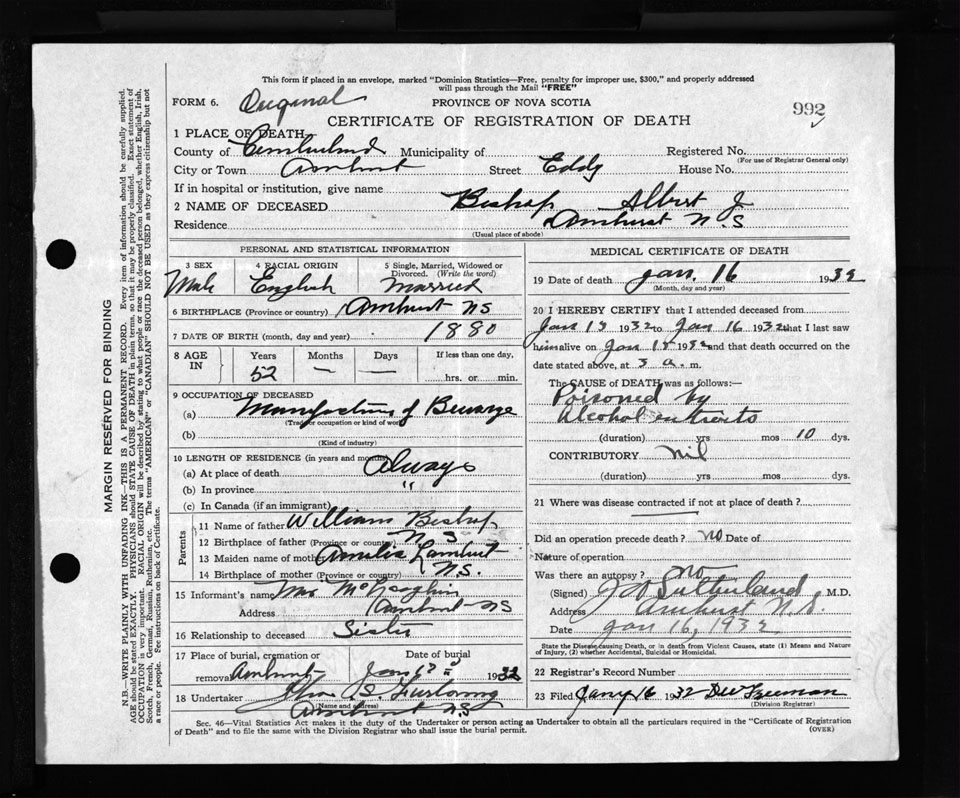 This form if placed in an envelope, marked "Dominion Statistics—Free, penalty for improper use, $300," and properly addressed
will pass through the Mail "FREE"
FORM 6. Original
PROVINCE OF NOVA SCOTIA
992
CERTIFICATE OF REGISTRATION OF DEATH
1 PLACE OF DEATH
County of Cumberland Municipality of Registered No.
(For use of Registrar General only)
City or Town Amherst Street Eddy House No.
If in hospital or institution, give name
2 NAME OF DECEASED Bishop Albert J
Residence Amherst N.S
(Usual place of abode)
PERSONAL AND STATISTICAL INFORMATION
3 SEX 4 RACIAL ORIGIN 5 Single, Married, Widowed or
Divorced. (Write the word)
Male English Married
6 BIRTHPLACE (Province or country) Amherst NS
7 DATE OF BIRTH (month, day and year) 1880
8 AGE IN Years Months Days If less than one day,
52 — — hrs. or min.
9 OCCUPATION OF DECEASED
(a) Manufacturing of
(Trade or occupation or kind of work)
(b)
(Kind of industry)
10 LENGTH OF RESIDENCE (in years and months)
(a) At place of death Always
(b) In province "
(c) In Canada (if an immigrant)
Parents
11 Name of father William Bishop
12 Birthplace of father (Province or country) N S
13 Maiden name of mother Amelia Lambert
14 Birthplace of mother (Province or country) N.S.
15 Informant's name Mrs
Address Amherst NS
16 Relationship to deceased Sister
17 Place of burial, cremation or Date of burial
removal Amherst Jan 1932
18 Undertaker S. Furlong
(Name and address)
Amherst NS
MEDICAL CERTIFICATE OF DEATH
19 Date of death Jan. 16 1932
(Month, day and year)
20 I HEREBY CERTIFY that I attended deceased from
Jan 1932 to Jan 16 1932 that I last saw
him alive on Jan 1932 and that death occurred on the
date stated above, at 3 a. m.
The CAUSE OF DEATH was as follows:
Poisoned by
Alcohol
(duration) yrs mos 10 dys.
CONTRIBUTORY nil
(duration) yrs mos dys.
21 Where was disease contracted if not at place of death?
Did an operation precede death? no Date of
Nature of operation
Was there an autopsy? no
(Signed) Sutherland M.D.
Address Amherst N.S.
Date Jan 16, 1932
State the Disease causing Death, or in death from Violent Causes, state (1) Means and Nature
of Injury, (2) whether Accidental, Suicidal or Homicidal.
22 Registrar's Record Number
23 Filed Jany 16 1932 Freeman
(Division Registrar)
Sec. 46—Vital Statistics Act makes it the duty of the Undertaker or person acting as Undertaker to obtain all the particulars required in the "Certificate of Registration
of Death" and to file the same with the Division Registrar who shall issue the burial permit.
(OVER)
MARGIN RESERVED FOR BINDING
N.B.—WRITE PLAINLY WITH UNFADING INK—THIS IS A PERMANENT RECORD. Every item of information should be carefully supplied.
AGE should be stated EXACTLY. PHYSICIANS should STATE CAUSE OF DEATH in plain terms, so that it may be properly classified. Exact statement of
OCCUPATION is very important. RACIAL ORIGIN will be described by stating to what people or race the deceased person belonged, whether English, Irish,
Scotch, French, German, Russian, Ruthenian, etc. The terms "AMERICAN" or "CANADIAN" SHOULD NOT BE USED as they express citizenship but not
a race or people. See instructions on back of Certificate.